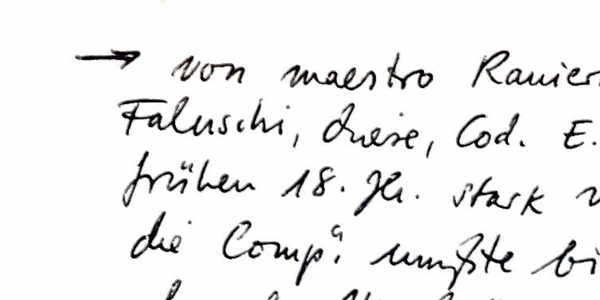 → von maestro Ranieri
Faluschi, Chiese, Cod. E.
frühen 18. Jh. stark
die Comp.ª mußte bi